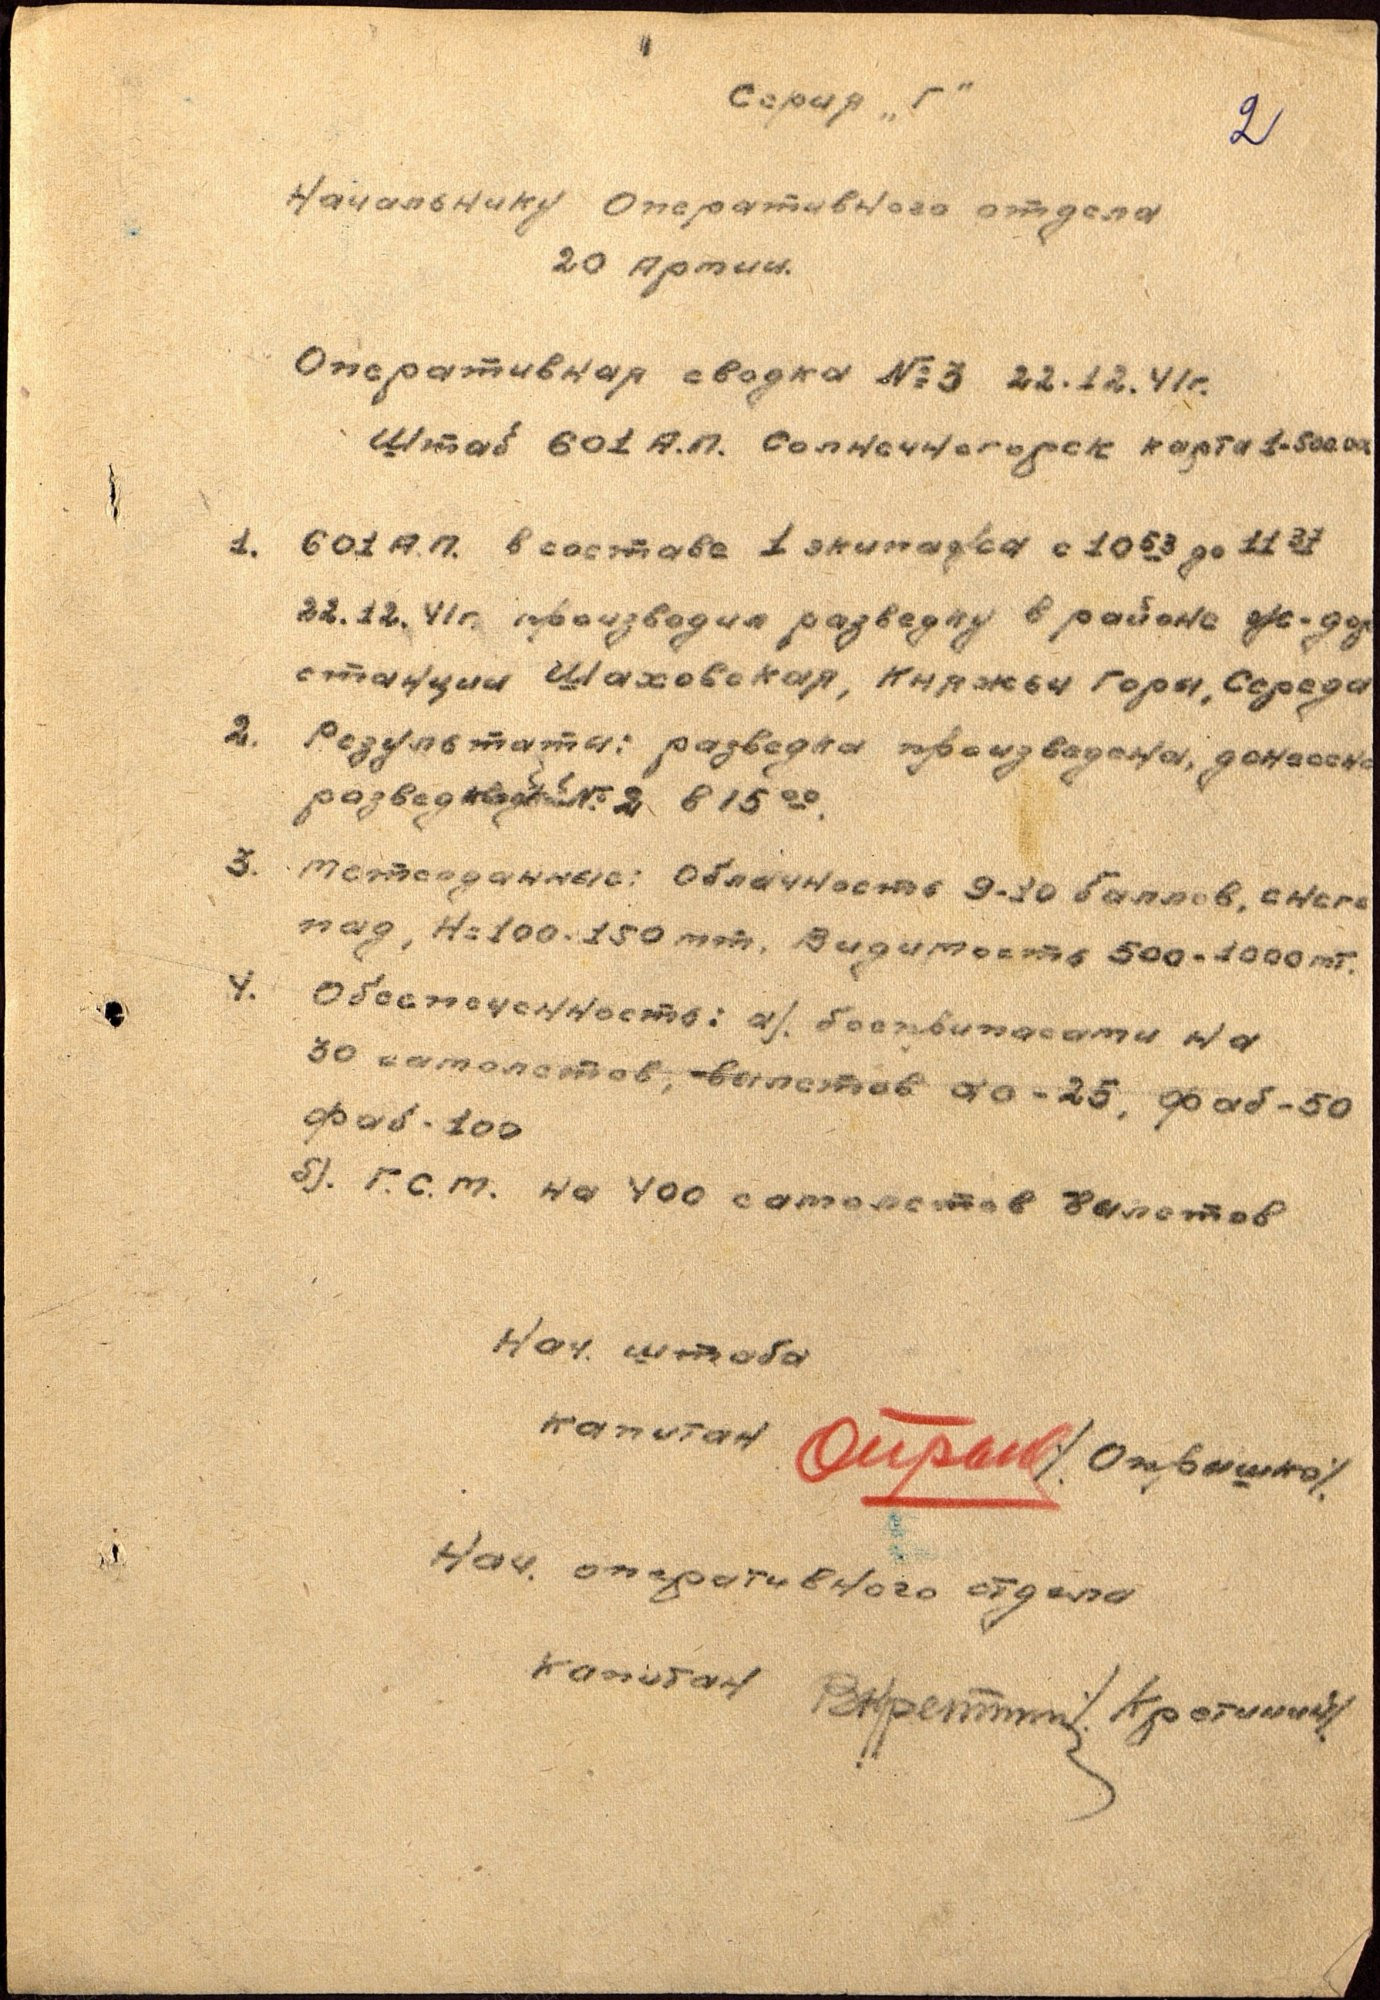 Серия „Г"
2
Начальнику Оперативного отдела
20 Армии.
Оперативная сводка №3 22.12.41г.
Штаб 601 А.П. Солнечногорск карта 1-500.00
1. 601 А.П. в составе 1 экипажа с 10 53 до 11 37
22.12.41г. производил разведку в районе ж-дор
станции Шаховская, Княжьи Горы, Середа
2. Результаты: разведка произведена, донесено
№ 2 в 15 00.
3. Метеоданные: Облачность 9-10 баллов, снего
пад, Н=100-150 мт. Видимость 500-1000 мт.
4. Обеспеченность: а). боеприпасами на
30 самолетов, вылетов ао-25, фаб-50
фаб-100
б). Г.С.М. на 400 самолетов вылетов
Нач. штаба
капитан /.
Нач. оперативного отдела
капитан /.